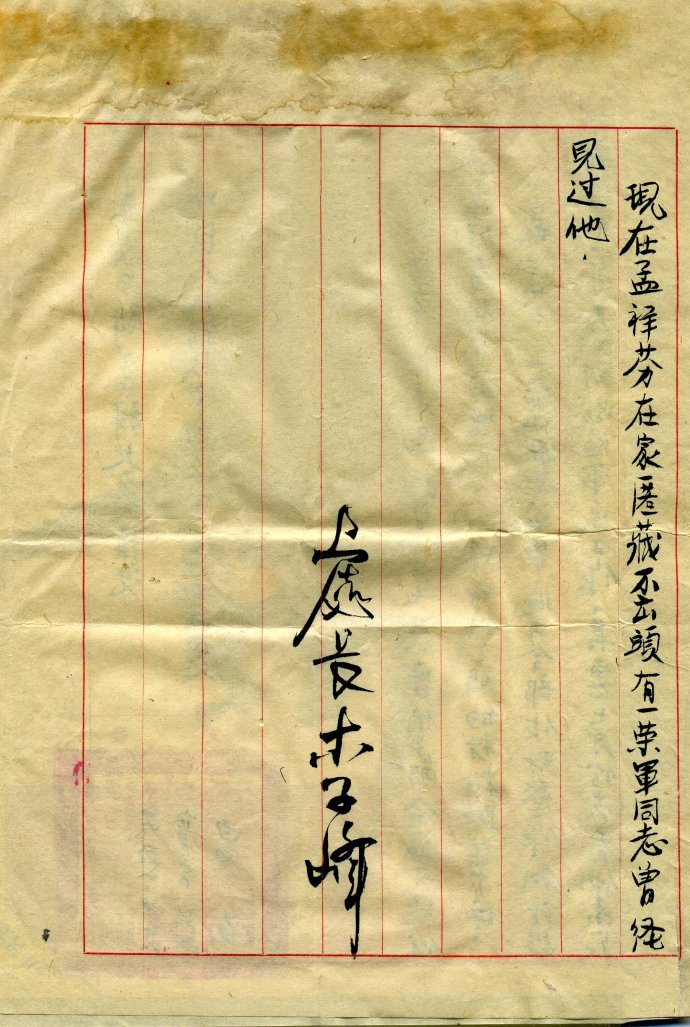 現在孟祥芬在家匿藏不出頭有一荣軍同志曾経
見过他.
上處長李峰